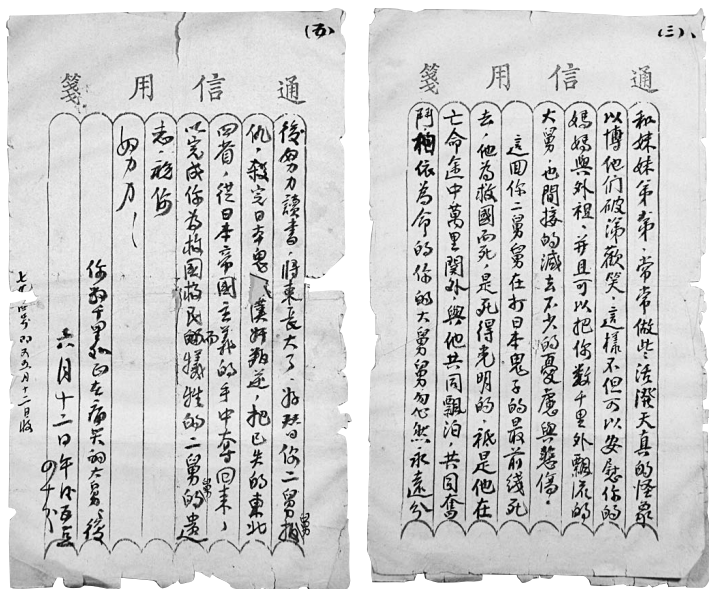 (三)、
通信用箋
和妹妹弟弟,常常做些活潑天真的怪象
以博他們破涕歡笑,這樣不但可以安慰你的
媽媽與外祖,并且可以把你數千里外飄流的
大舅,也間接的減去不少的憂慮與悲傷。
這回你二舅舅在打日本鬼子的最前綫死
去,他為救國而死,是死得光明的,祇是他在
亡命途中萬里關外,與他共同飄泊,共同奮
鬥相依為命的你的大舅舅忽然永遠分
(五)
通信用箋
後努力讀書,將來長大了,好替你二舅舅報
仇,殺完日本鬼子漢奸叛逆,把已失的東北
四省,從日本帝國主義的手中奪回來,
以完成你為救國救民而犧牲的二舅舅的遺
志,祝你
努力!
你數千里外正在痛哭的大舅舅
六月十二日午後五点
四十分
月十二日收